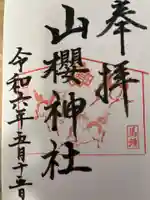 奉拝
山櫻神社
令和六年五月十五日